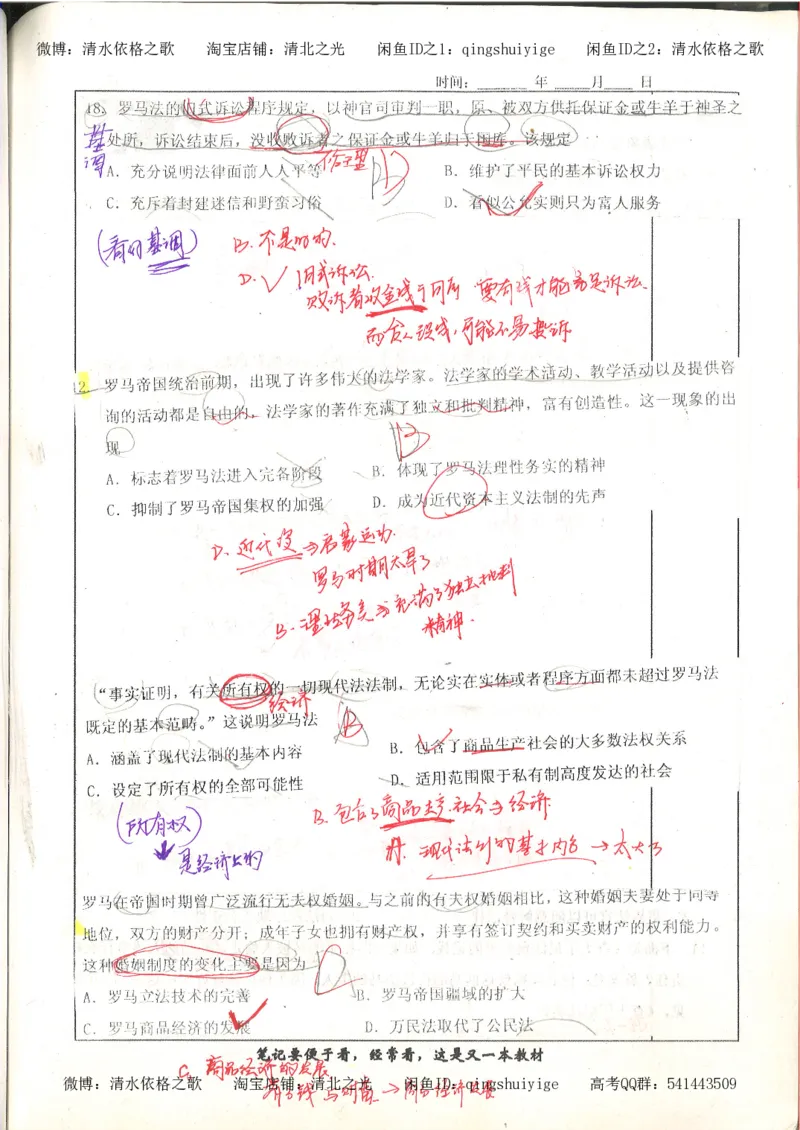 微博：清水依格之歌 淘宝店铺：清北之光 闲鱼ID之1：qingshuiyige 闲鱼ID之2：清水依格之歌
时间：______ 年 ______月______ 日
18. 罗马法的旧式诉讼程序规定，以神官司审判一职，原、被双方供托保证金或牛羊于神圣之
基调
处所，诉讼结束后，没收败诉者之保证金或牛羊归于国库。该规定
A．充分说明法律面前人人平等
B．维护了平民的基本诉讼权力
C．充斥着封建迷信和野蛮习俗
D．看似公允实则只为富人服务
(看好基调)
B. 不是的的.
D. √ 旧式诉讼.
败诉者收金钱于国库 要有钱才能易是诉讼.
而贫人没钱，可能不易投诉
12. 罗马帝国统治前期，出现了许多伟大的法学家。法学家的学术活动、教学活动以及提供咨
询的活动都是自由的，法学家的著作充满了独立和批判精神，富有创造性。这一现象的出
现
B
A．标志着罗马法进入完备阶段
B．体现了罗马法理性务实的精神
C．抑制了罗马帝国集权的加强
D．成为近代资本主义法制的先声
D. 近代没 → 启蒙运动.
罗马时期太早了
B. 理性务实 → 充满了独立批判
精神.
“事实证明，有关所有权的一切现代法法制，无论实在实体或者程序方面都未超过罗马法
经济
既定的基本范畴。”这说明罗马法
B
A．涵盖了现代法制的基本内容
B．包含了商品生产社会的大多数法权关系
C．设定了所有权的全部可能性
D．适用范围限于私有制高度发达的社会
(所有权)
是经济上的
B. 包含了商品生产社会 → 经济
A. 现代法制的基本内容 → 太大了
罗马在帝国时期曾广泛流行无夫权婚姻。与之前的有夫权婚姻相比，这种婚姻夫妻处于同等
地位，双方的财产分开；成年子女也拥有财产权，并享有签订契约和买卖财产的权利能力。
这种婚姻制度的变化主要是因为
A．罗马立法技术的完善
B．罗马帝国疆域的扩大
C．罗马商品经济的发展
D．万民法取代了公民法
笔记要便于看，经常看，这是又一本教材
C. 商品经济的发展
微博：清水依格之歌 淘宝店铺：清北之光 闲鱼ID：qingshuiyige 高考QQ群：541443509